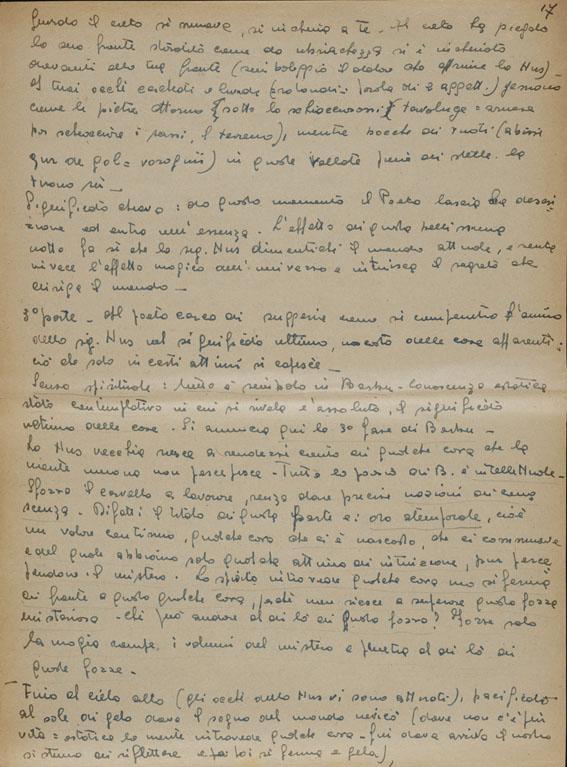 17
Guarda il cielo si muove, si inchina a te. Il cielo ha piegato
la sua fronte stordita come da ubriachezza si è inchinato
davanti alla tua fronte (simboleggia il dolore che opprime la Nus) -
I tuoi occhi
come la pietra attorno
per schiacciare i sassi, il terreno), mentre bocche di ruoti (abissi
gur de gol = voragini) in queste vallate piene di stelle. la
Significato chiave: da questo momento il Poeta lascia la descri
zione ed entra nell'essenza. L'effetto di questa bellissima
notte fa sì che la sig. Nus dimentichi il mondo attuale, e senta
invece l'effetto magico dell'universo e intuisca il segreto che
dirige il mondo -
3° parte - Il poeta cerca di suggerire come si compenetra l'animo
della sig. Nus nel significato ultimo, nascosto delle cose apparenti:
ciò che solo in certi attimi si capisce -
Senso spirituale: tutto è simbolo in Barbu - Conoscenza estatica
stato contemplativo in cui si rivela l'assoluto, il significato
ultimo delle cose. Si annuncia qui la 3° fase di Barbu -
La Nus vecchia riesce a rendersi conto di qualche cosa che la
mente umana non percepisce - Tutta la poesia di B. è intellettuale -
Sforza il cervello a lavorare, senza dare precise nozioni di cono
scenza. Difatti il titolo di questa parte è: ora atemporale, cioè
un valore continuo, qualche cosa che ci è nascosto, che ci commuove
e del quale abbiamo solo qualche attimo di intuizione, pur
il mistero. Lo spirito intravede qualche cosa ma si ferma
di fronte a questo qualche cosa, perché non riesce a superare questa forza
misteriosa - Chi può andare al di là di questa forza? Forse solo
la magia rompe i volumi del mistero e penetra al di là di
queste forze -
- Fino al cielo alto (gli occhi della Nus vi sono attirati), pacificato
al sole di gelo dove il sogno del mondo nevicò (dove non c'è più
vita = estatica la mente intravede qualche cosa - fin dove arriva il nostro
sistema di riflettere e poi poi si ferma e gela),